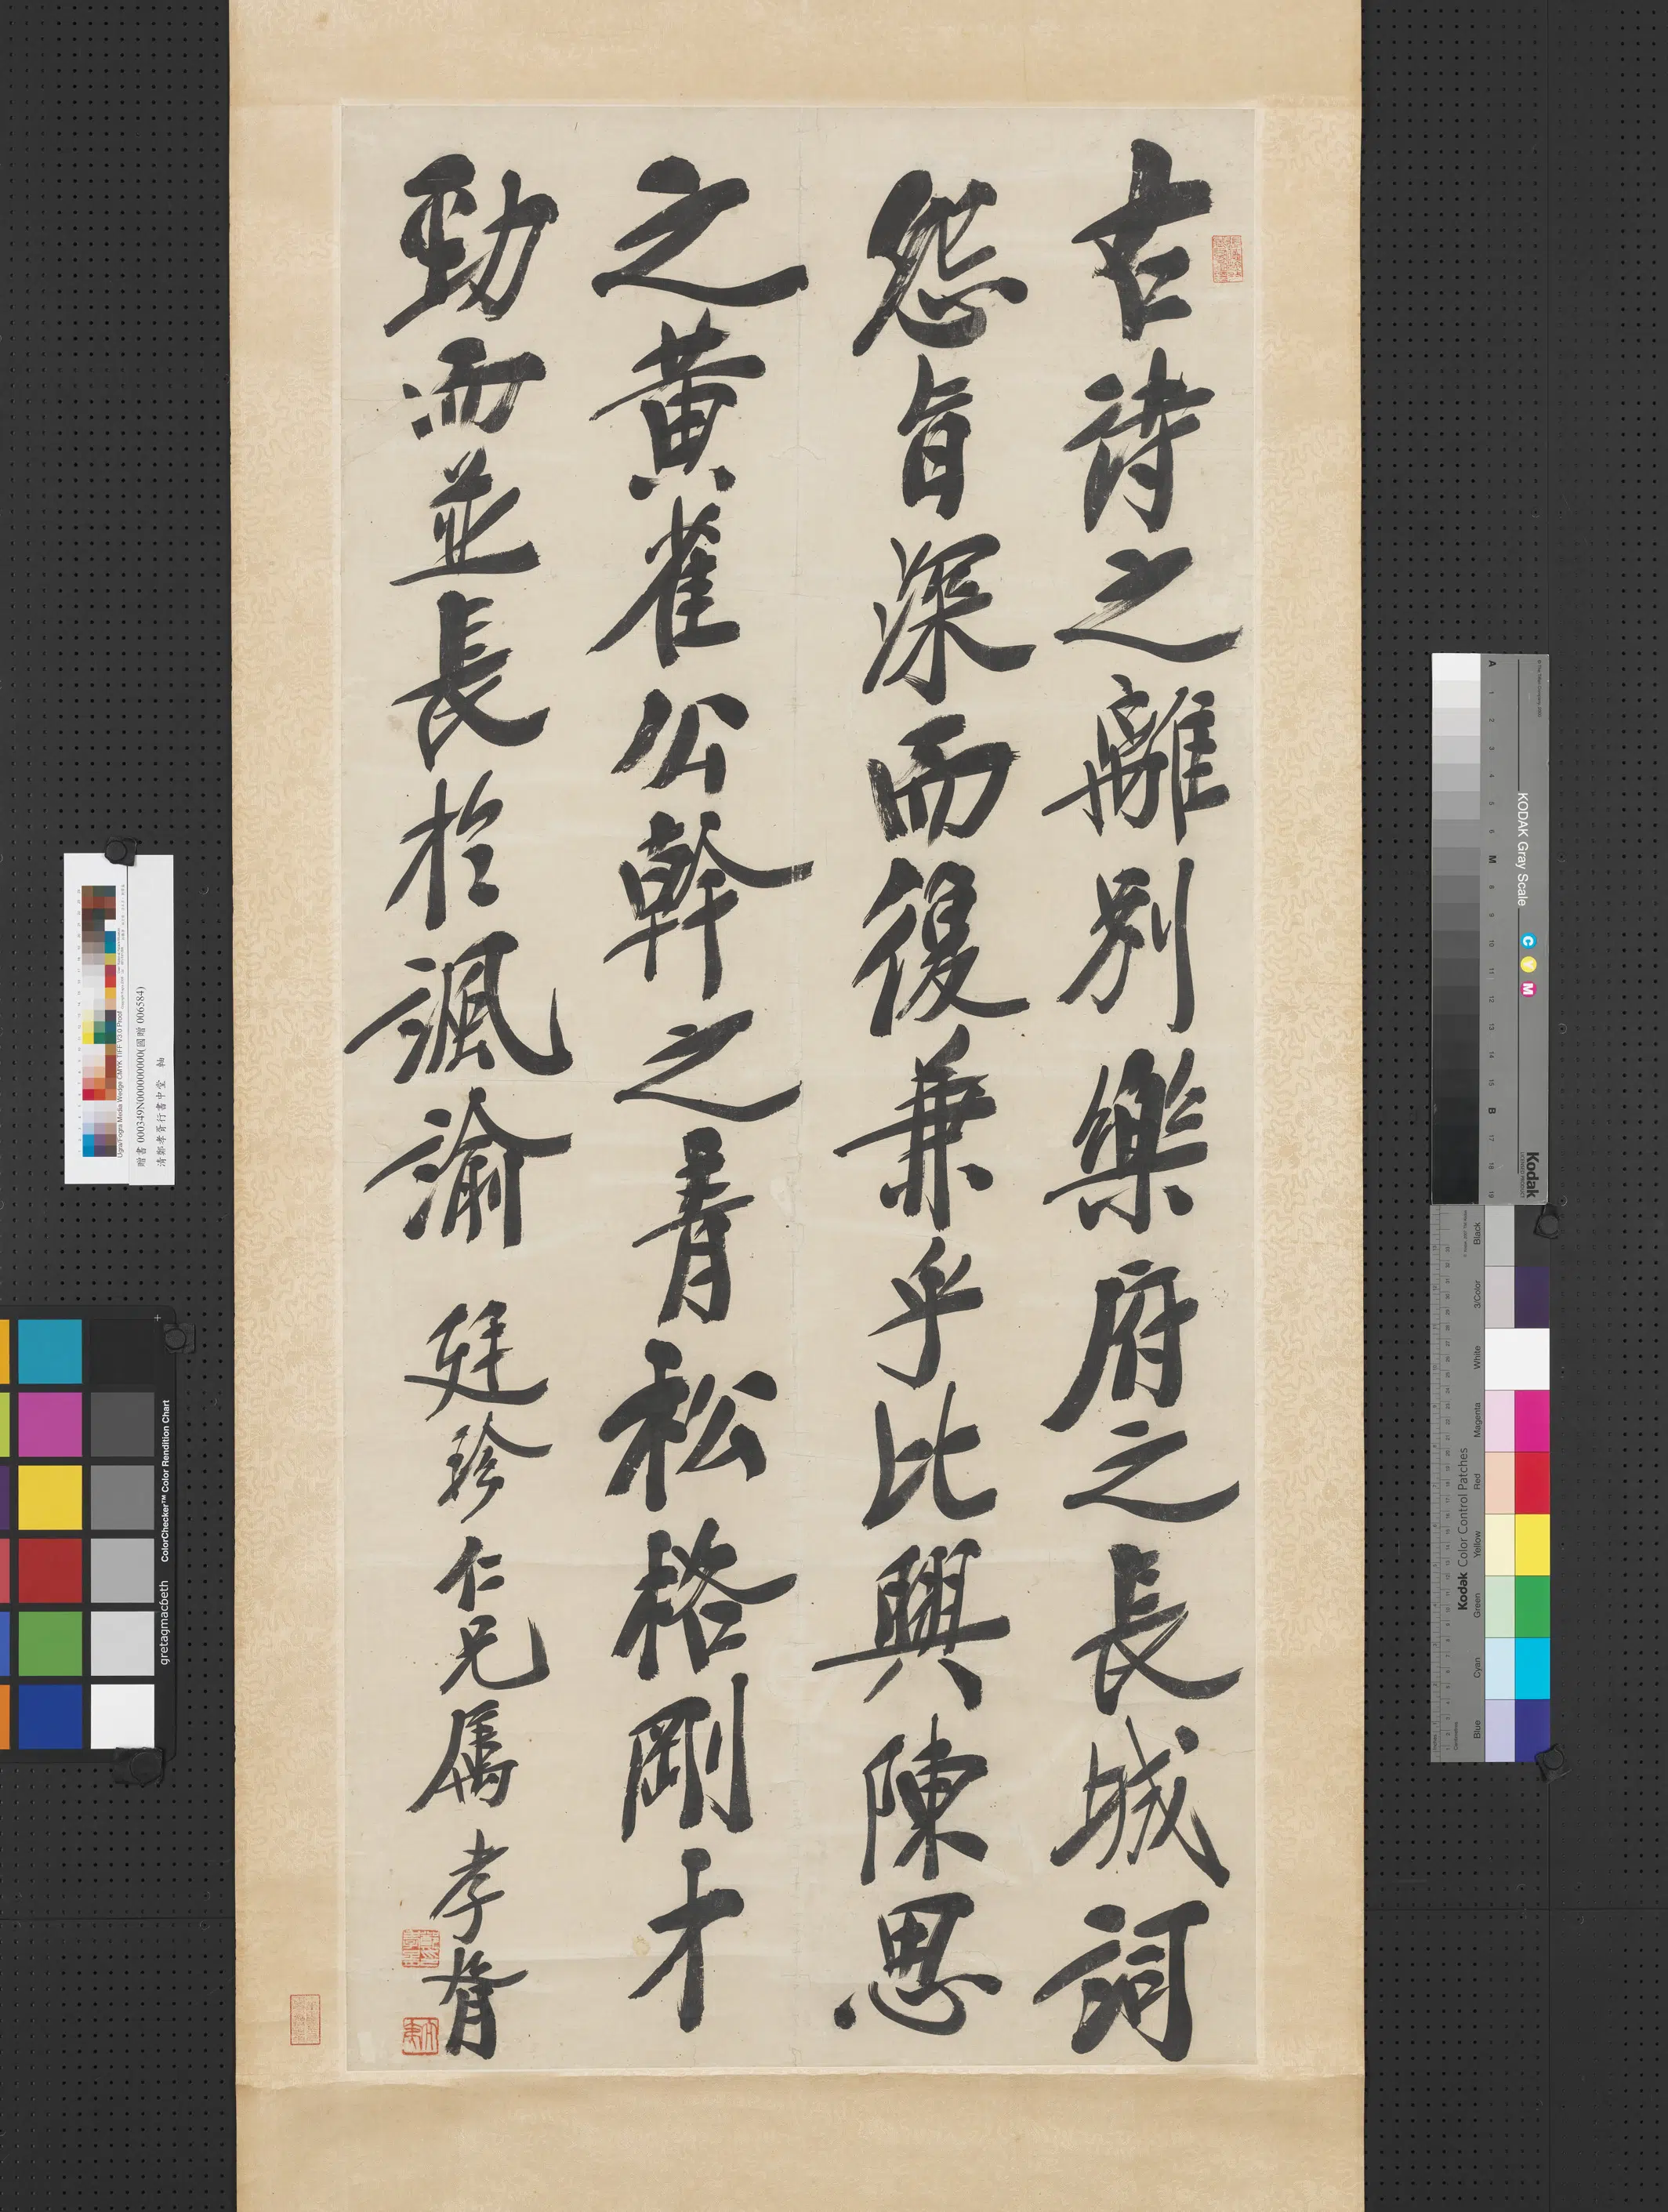 古詩之離別樂府之長城詞
怨旨深而復兼乎比興陳思
之黃雀公幹之青松格剛才
勁而並長於諷諭 廷珍仁兄屬 孝胥
贈書 000349N000000000(國贈 006584)
清鄭孝胥行書中堂 軸
Ugra/Fogra Media Wedge CMYK TIFF V3.0 Proof
ColorChecker™ Color Rendition Chart
gretagmacbeth
KODAK Gray Scale
C Y M
Kodak
LICENSED PRODUCT
A 1 2 3 4 5 6 M 8 9 10 11 12 13 14 15 B 17 18 19
Kodak Color Control Patches
Blue Cyan Green Yellow Red Magenta White 3/Color Black